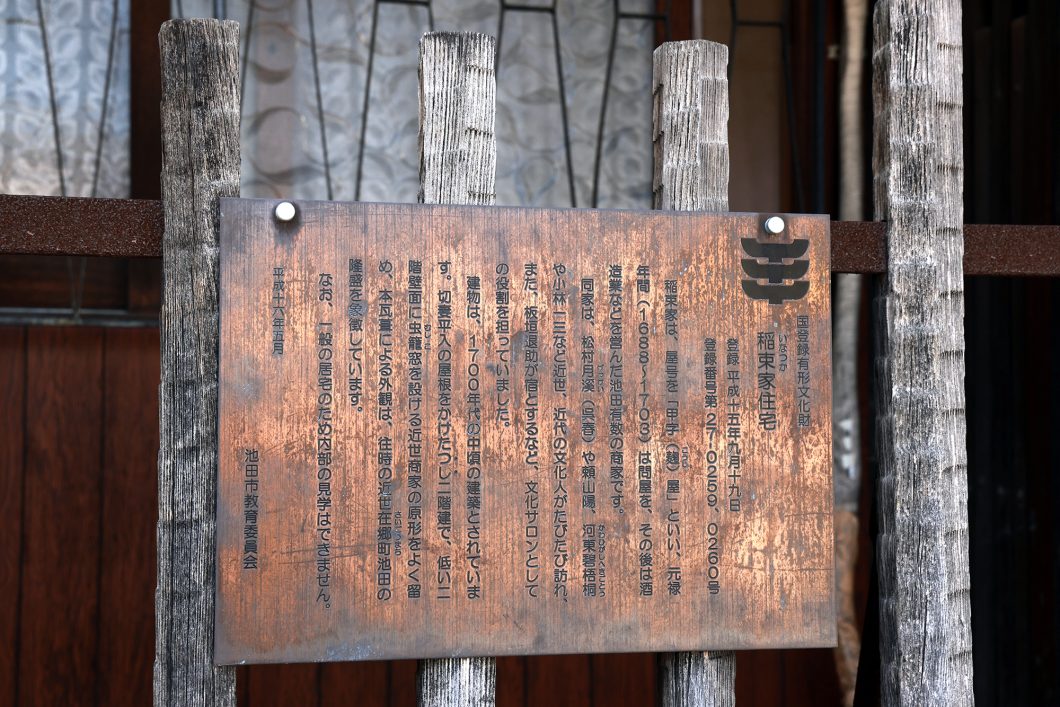 国登録有形文化財
稲束家住宅
いなつか
登録 平成十五年九月十九日
登録番号第27-0259、0260号
稲束家は、屋号を「甲字(麹)屋」といい、元禄
年間(1688~1703)は問屋を、その後は酒
造業などを営んだ池田有数の商家です。
同家は、松村月溪(呉春)や頼山陽、河東碧梧桐
や小林一三など近世、近代の文化人がたびたび訪れ、
また、板垣退助が宿とするなど、文化サロンとして
の役割を担っていました。
建物は、1700年代の中頃の建築とされていま
す。切妻平入の屋根をかけたつし二階建で、低い二
階壁面に虫籠窓を設ける近世商家の原形をよく留
め、本瓦葺による外観は、往時の近世在郷町池田の
隆盛を象徴しています。
なお、一般の居宅のため内部の見学はできません。
平成十六年五月
池田市教育委員会